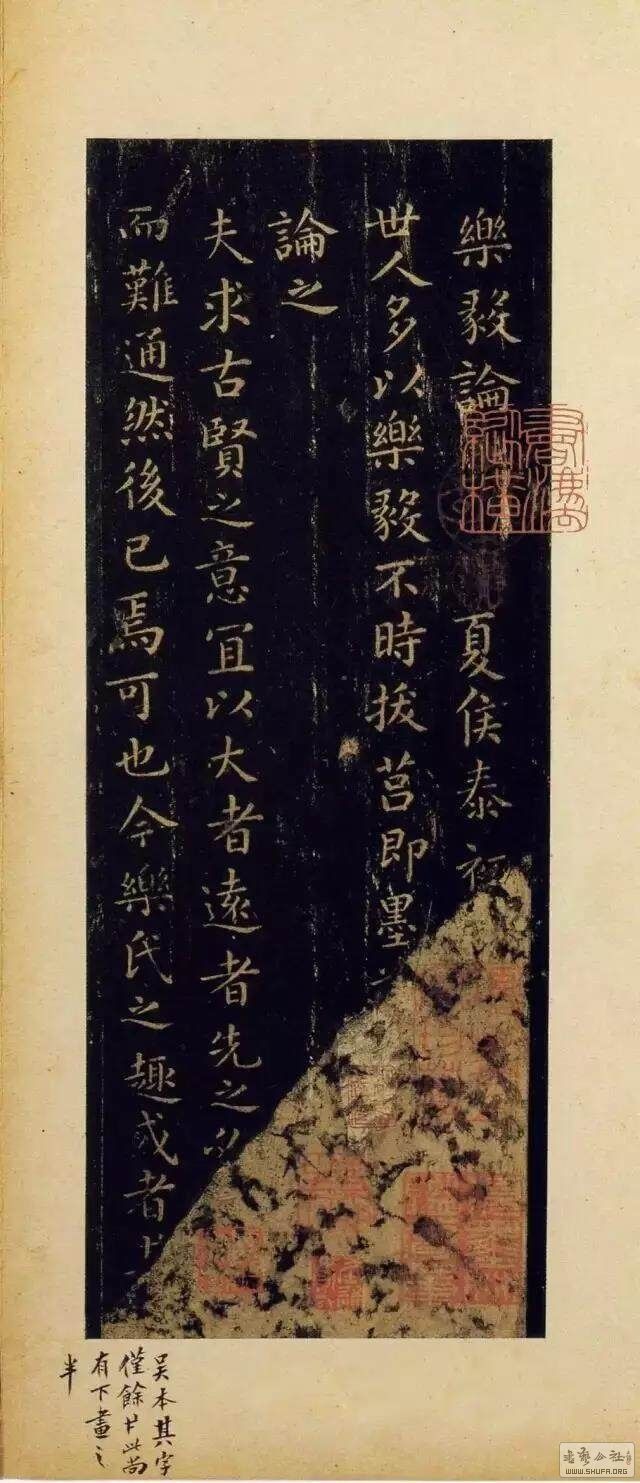 樂毅論 夏侯泰初
世人多以樂毅不時拔莒即墨
論之
夫求古賢之意宜以大者遠者先之
而難通然後已焉可也今樂氏之趣或者
吳本其字
僅餘廿此尚
有下畫之
半
書藝公社
WWW.SHUFA.ORG